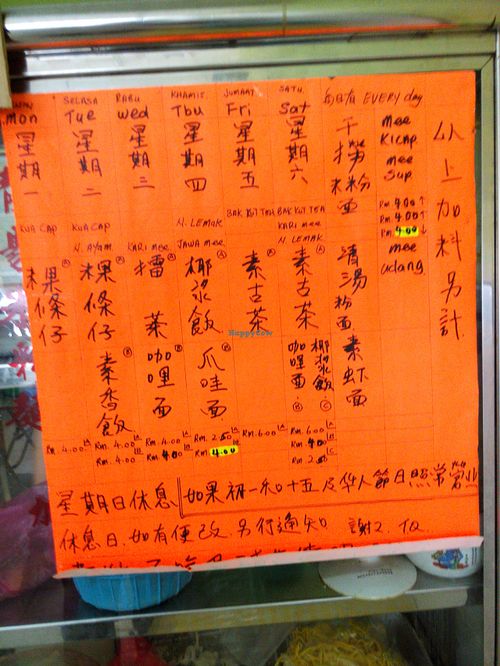 SELASA RABU KHAMIS JUMAAT SATU
mon Tue wed Thu Fri Sat 每日有 EVERY day
星期一 星期二 星期三 星期四 星期五 星期六
干捞米粉面
mee
Kicap
mee
Sup
Rm 4.00↑
Rm 4.00↑
Rm 4.00↓
mee
udang
以上加料另計
KUA CAP
粿條仔
Rm. 4.00
KUA CAP
N. AYAM
粿條仔 A
素香飯 B
Rm. 4.00 A
Rm. 4.00 B
KARI mee
擂茶 A
咖哩面 B
Rm. 4.00 A
Rm. 4.00 B
N. LEMAK
JAWA mee
椰浆飯 A
瓜哇面 B
Rm. 2.50 A
Rm. 4.00 B
BAK KUT TEA
素古茶
Rm. 6.00
BAK KUT TEA
KARI mee
N. LEMAK
素古茶 A
咖哩面 B
椰浆飯 C
Rm. 6.00 A
Rm. 4.00 B
Rm. 2.50 C
清湯粉面
素虾面
星期日休息 如果初一和十五及华人節日照常营业
休息日.如有更改.另行通知 謝
HappyCow